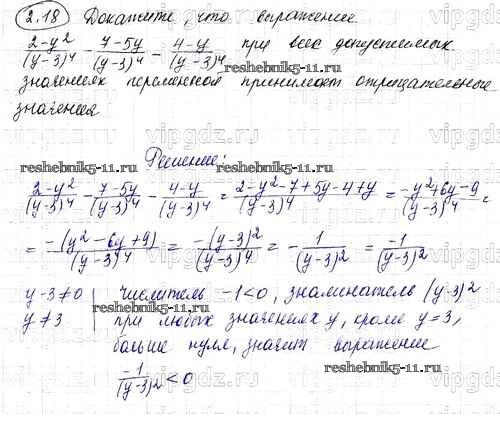 2.18 Докажите, что выражение
(2-y²)/(y-3)⁴ - (7-5y)/(y-3)⁴ - (4-y)/(y-3)⁴ при всех допустимых
значениях переменной принимает отрицательные
значения
reshebnik5-11.ru
Решение:
(2-y²)/(y-3)⁴ - (7-5y)/(y-3)⁴ - (4-y)/(y-3)⁴ = (2-y²-7+5y-4+y)/(y-3)⁴ = (-y²+6y-9)/(y-3)⁴ =
= (-(y²-6y+9))/(y-3)⁴ = (-(y-3)²)/(y-3)⁴ = -1/(y-3)² = (-1)/(y-3)²
y-3≠0 | числитель -1<0, знаминатель (y-3)²
y≠3 | при любых значениях y, кроме y=3,
больше нуля, значит выражение
(-1)/(y-3)² < 0